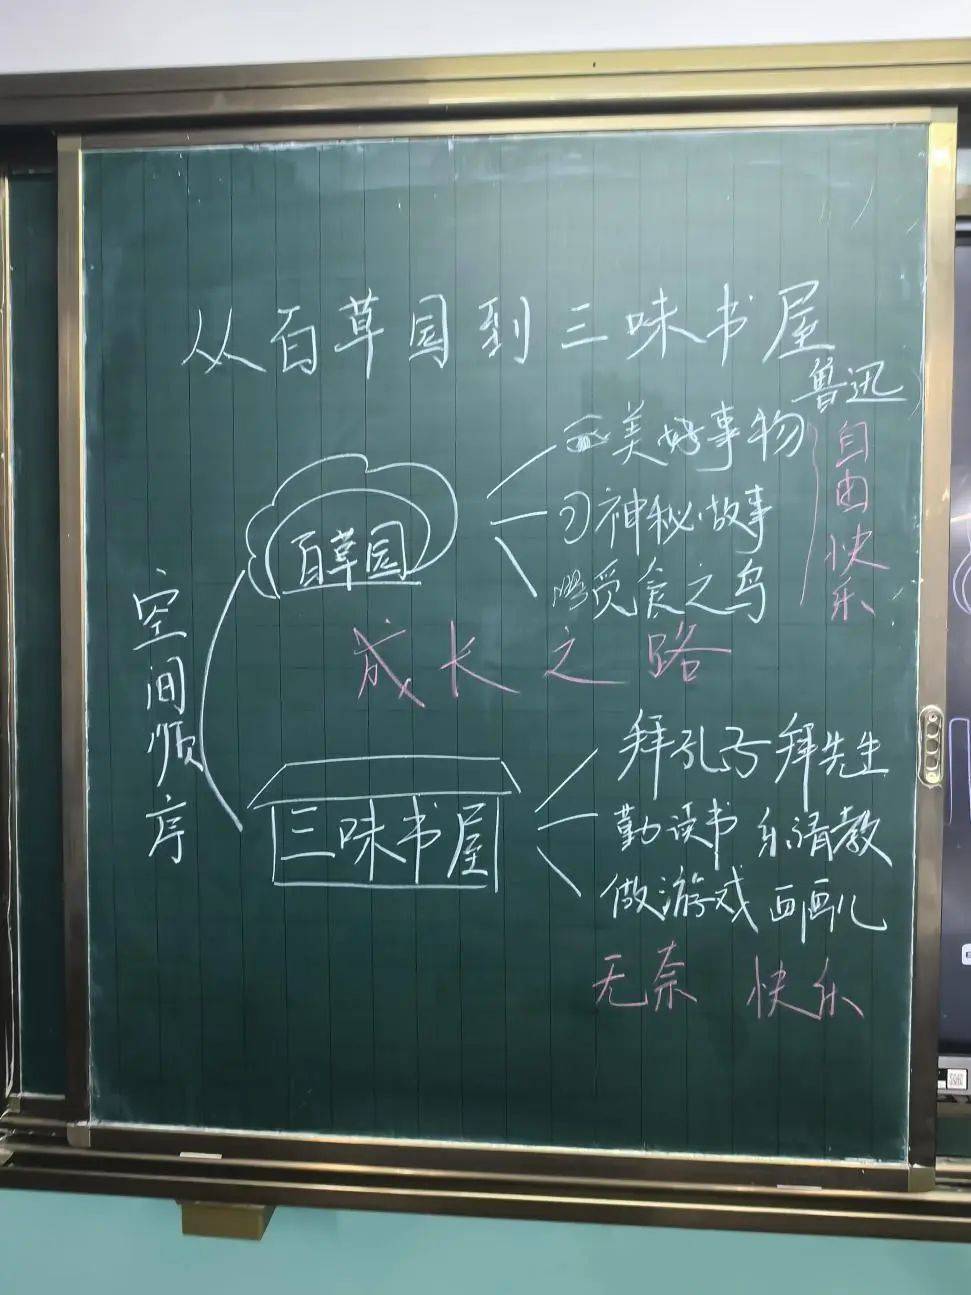 从百草园到三味书屋
鲁迅
美好事物
神秘故事
觅食之鸟
自由快乐
百草园
空间顺序
成长之路
三味书屋
拜孔子 拜先生
勤读书 乐请教
做游戏 画画儿
无奈 快乐